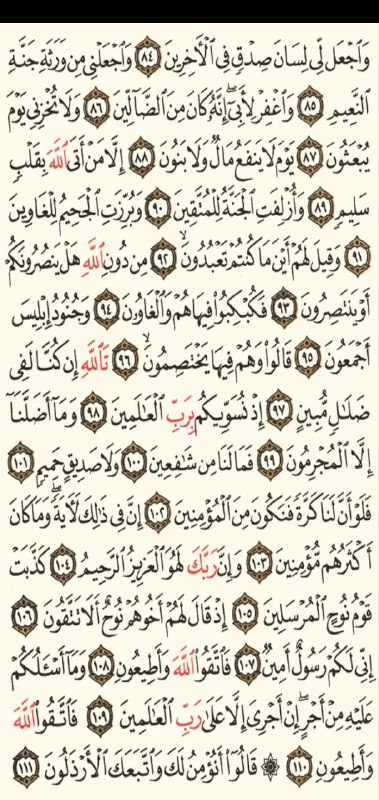 وَٱجْعَل لِّى لِسَانَ صِدْقٍ فِى ٱلْـَٔاخِرِينَ ٨٤ وَٱجْعَلْنِى مِن وَرَثَةِ جَنَّةِ
ٱلنَّعِيمِ ٨٥ وَٱغْفِرْ لِأَبِىٓ إِنَّهُۥ كَانَ مِنَ ٱلضَّآلِّينَ ٨٦ وَلَا تُخْزِنِى يَوْمَ
يُبْعَثُونَ ٨٧ يَوْمَ لَا يَنفَعُ مَالٌ وَلَا بَنُونَ ٨٨ إِلَّا مَنْ أَتَى ٱللَّهَ بِقَلْبٍ
سَلِيمٍ ٨٩ وَأُزْلِفَتِ ٱلْجَنَّةُ لِلْمُتَّقِينَ ٩٠ وَبُرِّزَتِ ٱلْجَحِيمُ لِلْغَاوِينَ
٩١ وَقِيلَ لَهُمْ أَيْنَ مَا كُنتُمْ تَعْبُدُونَ ٩٢ مِن دُونِ ٱللَّهِ هَلْ يَنصُرُونَكُمْ
أَوْ يَنتَصِرُونَ ٩٣ فَكُبْكِبُوا۟ فِيهَا هُمْ وَٱلْغَاوُۥنَ ٩٤ وَجُنُودُ إِبْلِيسَ
أَجْمَعُونَ ٩٥ قَالُوا۟ وَهُمْ فِيهَا يَخْتَصِمُونَ ٩٦ تَٱللَّهِ إِن كُنَّا لَفِى
ضَلَٰلٍ مُّبِينٍ ٩٧ إِذْ نُسَوِّيكُم بِرَبِّ ٱلْعَٰلَمِينَ ٩٨ وَمَآ أَضَلَّنَآ
إِلَّا ٱلْمُجْرِمُونَ ٩٩ فَمَا لَنَا مِن شَٰفِعِينَ ١٠٠ وَلَا صَدِيقٍ حَمِيمٍ ١٠١
فَلَوْ أَنَّ لَنَا كَرَّةً فَنَكُونَ مِنَ ٱلْمُؤْمِنِينَ ١٠٢ إِنَّ فِى ذَٰلِكَ لَـَٔايَةً ۖ وَمَا كَانَ
أَكْثَرُهُم مُّؤْمِنِينَ ١٠٣ وَإِنَّ رَبَّكَ لَهُوَ ٱلْعَزِيزُ ٱلرَّحِيمُ ١٠٤ كَذَّبَتْ
قَوْمُ نُوحٍ ٱلْمُرْسَلِينَ ١٠٥ إِذْ قَالَ لَهُمْ أَخُوهُمْ نُوحٌ أَلَا تَتَّقُونَ ١٠٦
إِنِّى لَكُمْ رَسُولٌ أَمِينٌ ١٠٧ فَٱتَّقُوا۟ ٱللَّهَ وَأَطِيعُونِ ١٠٨ وَمَآ أَسْـَٔلُكُمْ
عَلَيْهِ مِنْ أَجْرٍ ۖ إِنْ أَجْرِىَ إِلَّا عَلَىٰ رَبِّ ٱلْعَٰلَمِينَ ١٠٩ فَٱتَّقُوا۟ ٱللَّهَ
وَأَطِيعُونِ ١١٠ ۞ قَالُوٓا۟ أَنُؤْمِنُ لَكَ وَٱتَّبَعَكَ ٱلْأَرْذَلُونَ ١١١